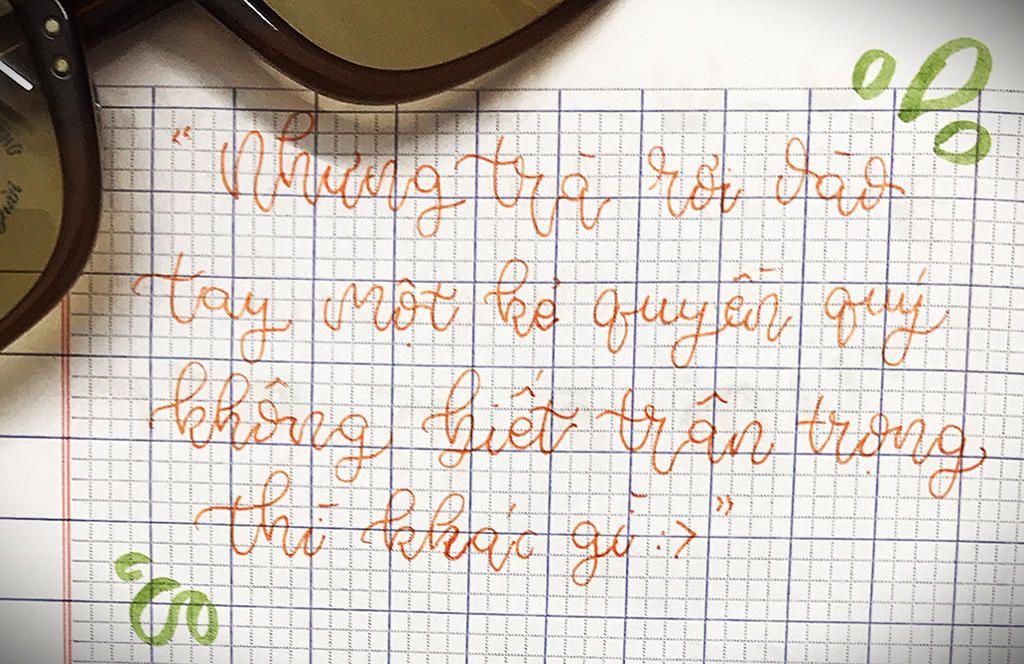 “Nhưng trà rơi vào
tay một kẻ quyền quý
không biết trân trọng
thì khác gì :>”